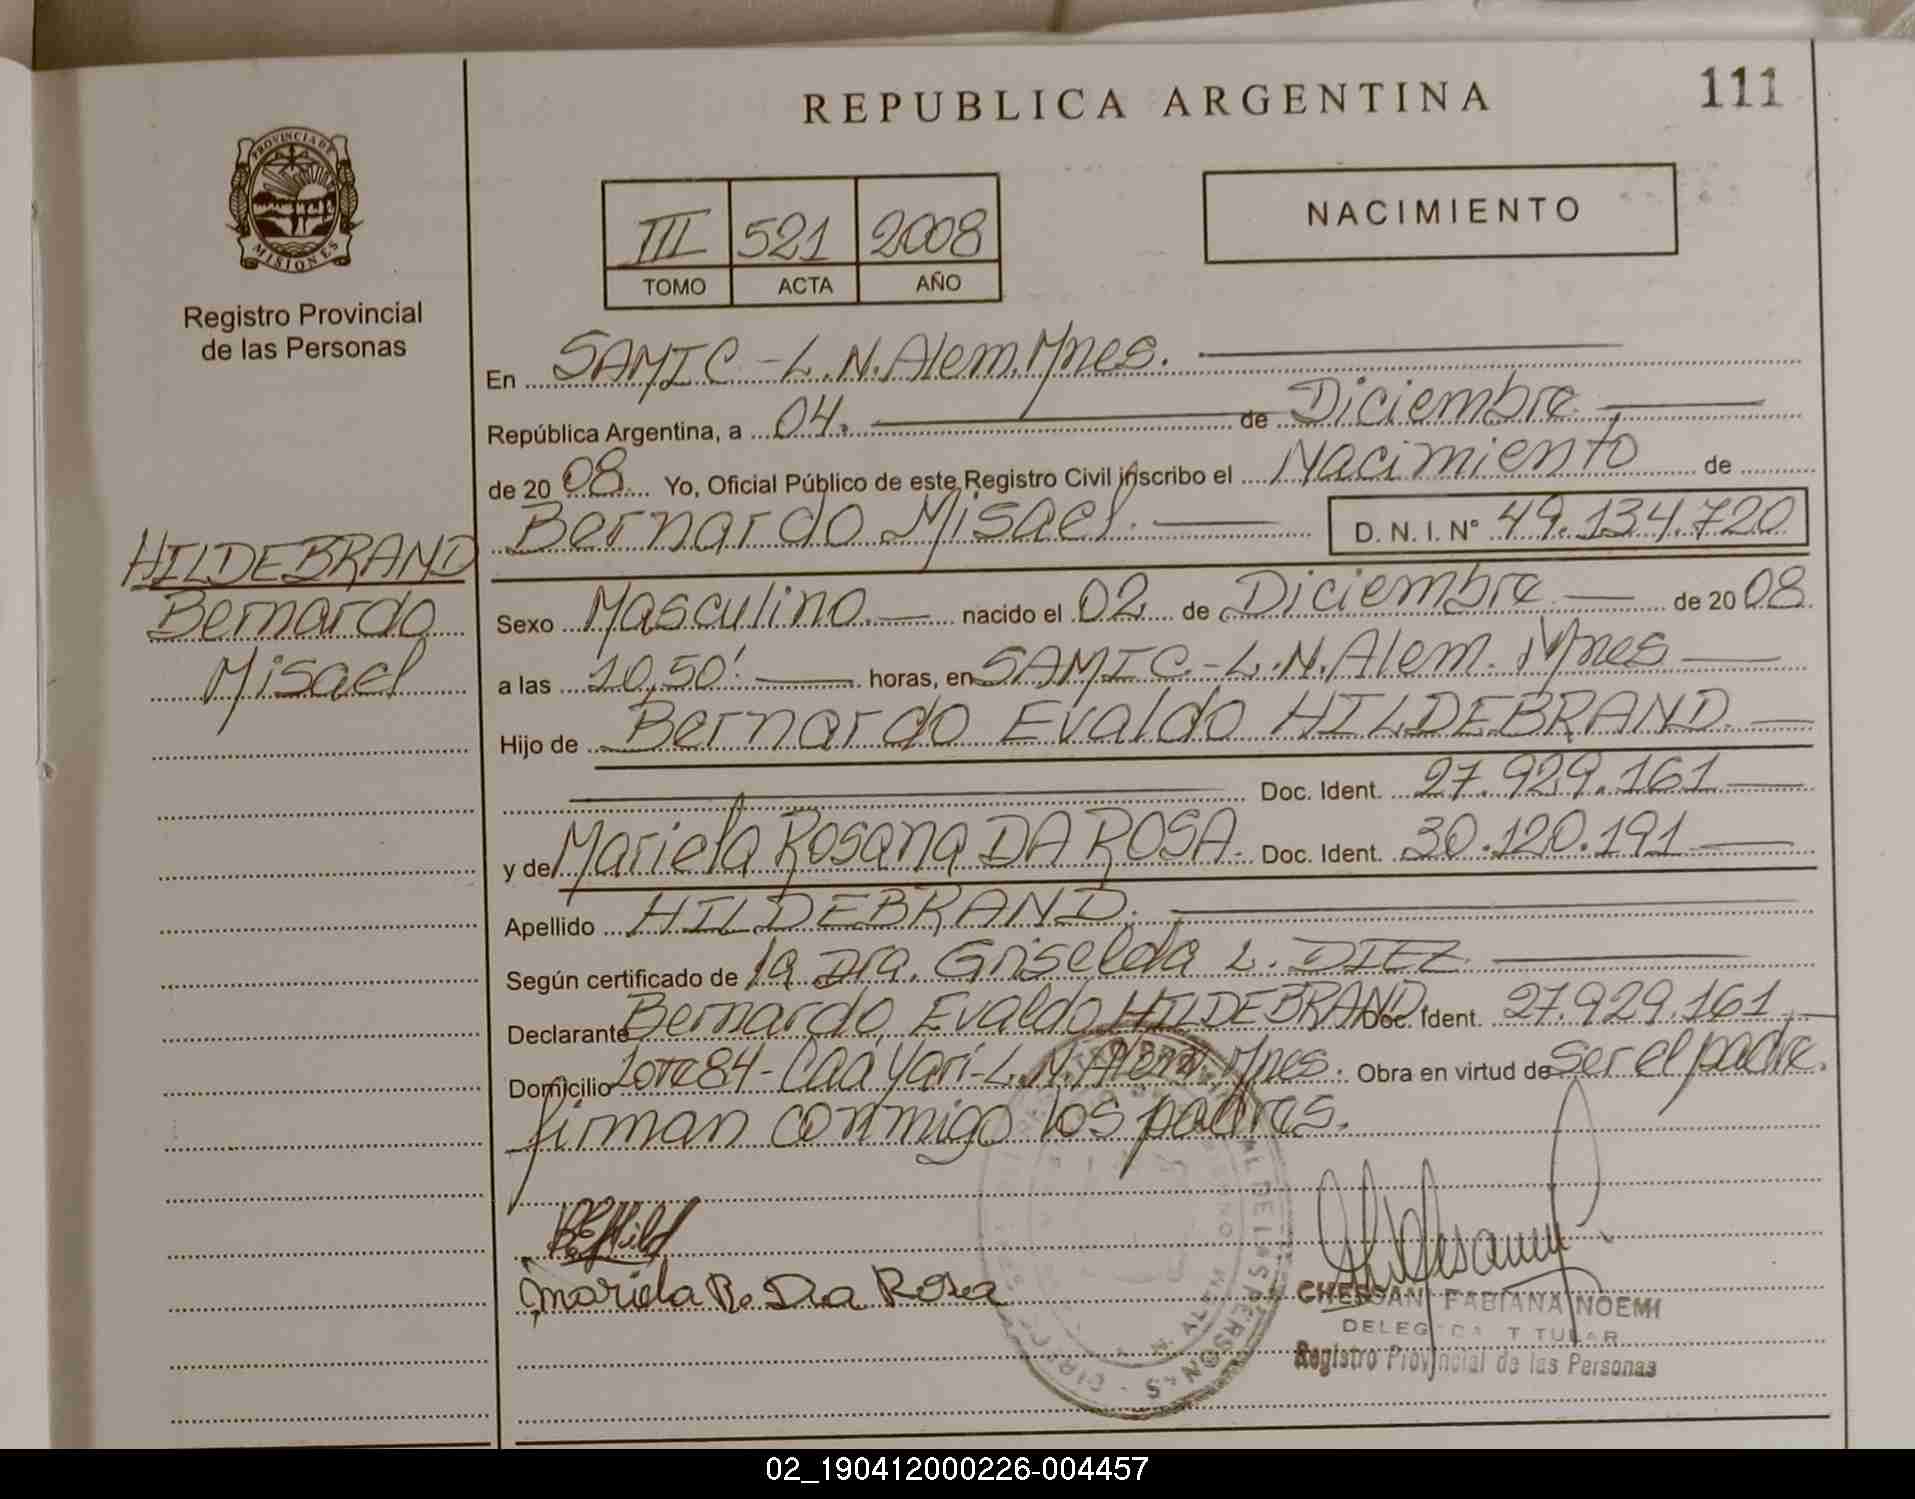 REPUBLICA ARGENTINA
111
PROVINCIA DE
MISIONES
Registro Provincial
de las Personas
III 521 2008
TOMO ACTA AÑO
NACIMIENTO
En SAMIC - L.N. Alem. Mnes.
República Argentina, a 04. de Diciembre
de 2008 Yo, Oficial Público de este Registro Civil inscribo el Nacimiento de
Bernardo Misael. D. N. I. N° 49.134.720
HILDEBRAND
Bernardo
Misael
Sexo Masculino. nacido el 02 de Diciembre de 2008
a las 10,50' horas, en SAMIC. - L.N. Alem. Mnes
Hijo de Bernardo Evaldo HILDEBRAND.
Doc. Ident. 27.929.161
y de Mariela Rosana DA ROSA. Doc. Ident. 30.120.191
Apellido HILDEBRAND.
Según certificado de la Dra. Griselda L. DIEZ
Declarante Bernardo Evaldo HILDEBRAND. Doc. Ident. 27.929.161
Domicilio Lote 84 - Caá Yarí - L.N. Alem. Mnes. Obra en virtud de ser el padre.
firman conmigo los padres.
Mariela R. Da Rosa
FABIANA NOEMI
DELEGADA TITULAR
Registro Provincial de las Personas
02_190412000226-004457